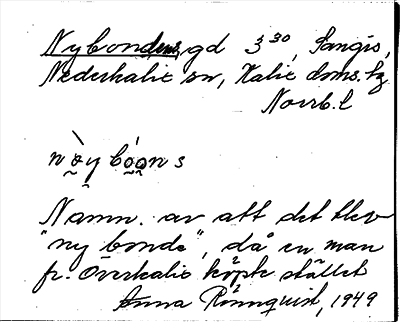 Nybondens, gd 3³⁰, Sangis,
Nederkalix sn, Kalix doms. hg
Norrb. l
nò̰y bóo̰n s
Namn. av att det blev
"ny bonde", då en man
fr. Överkalix köpte stället
Anna Rönnquist, 1949